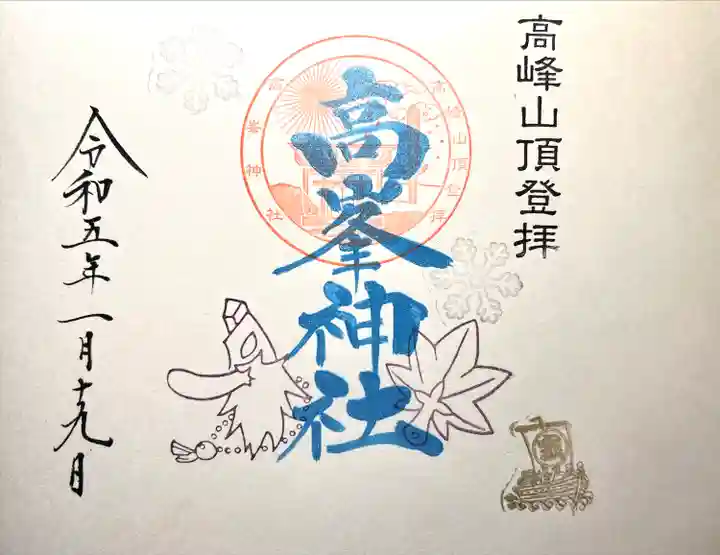 高峰山頂登拝
高峯神社
高峯神社
高峰山頂登拝
令和五年一月十九日